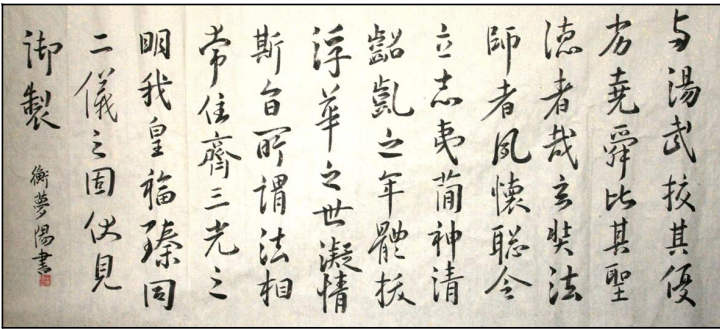 与湯武挍其優
劣堯舜比其聖
德者哉玄奘法
師者夙懷聡令
立志夷蕳神清
齠齔之年體拔
浮華之世凝情
斯旨所謂法相
常住齊三光之
明我皇福臻同
二儀之固伏見
御製
衡夢陽書